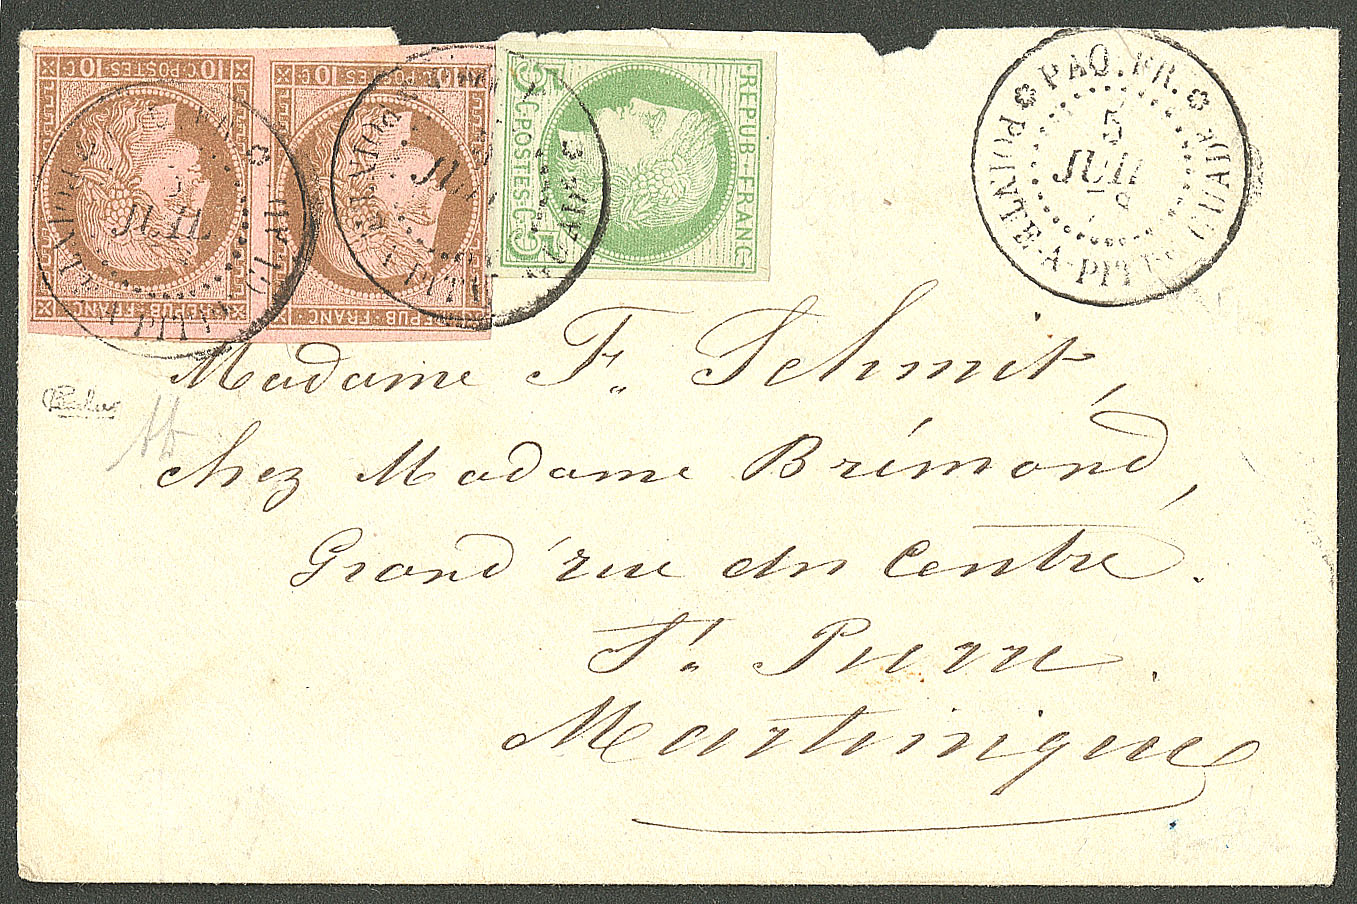 10 C. POSTES 10 C.
REPUB FRANC
10 C. POSTES 10 C.
REPUB FRANC
REPUB FRANC
5 C. POSTES C. 5
JUIL
PAQ. FR.
POINTE-A-PITRE GUADE
5
JUIL
Madame F. Schmit,
chez Madame Brémond,
Grand'rue du Centre.
St. Pierre.
Martinique